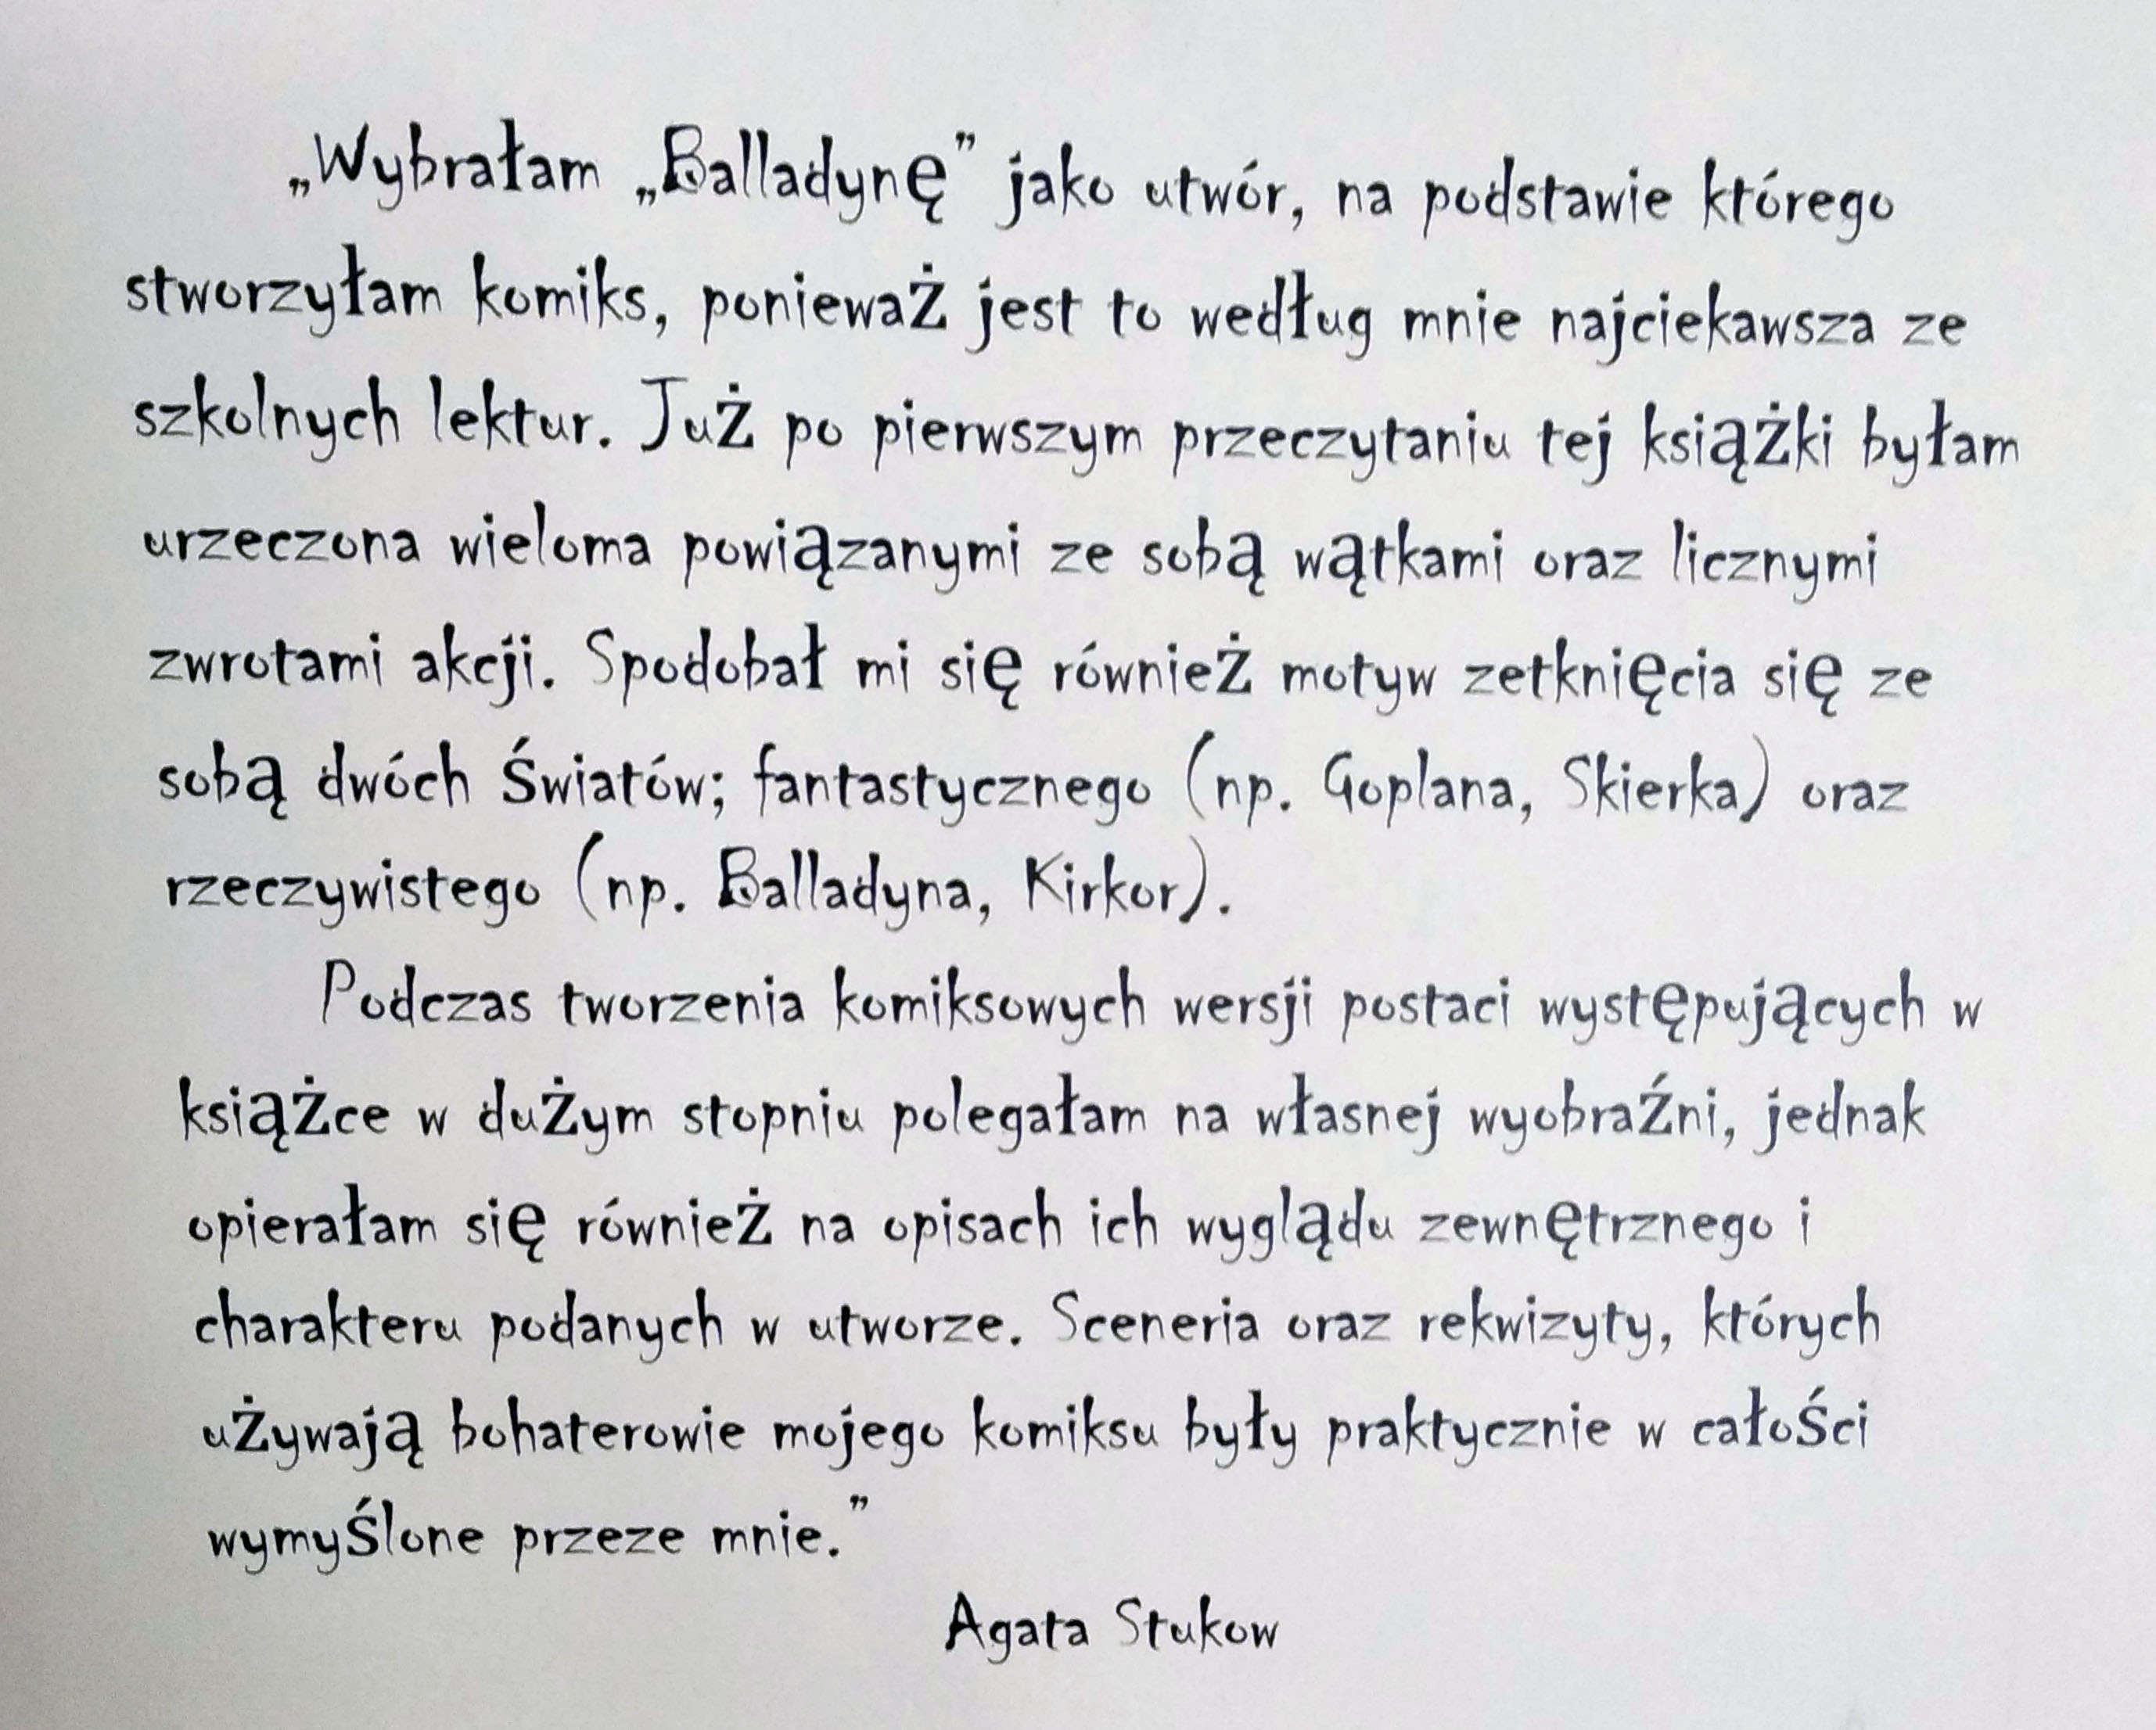 „Wybrałam „Balladynę” jako utwór, na podstawie którego
stworzyłam komiks, ponieważ jest to według mnie najciekawsza ze
szkolnych lektur. Już po pierwszym przeczytaniu tej książki byłam
urzeczona wieloma powiązanymi ze sobą wątkami oraz licznymi
zwrotami akcji. Spodobał mi się również motyw zetknięcia się ze
sobą dwóch światów; fantastycznego (np. Goplana, Skierka) oraz
rzeczywistego (np. Balladyna, Kirkor).
Podczas tworzenia komiksowych wersji postaci występujących w
książce w dużym stopniu polegałam na własnej wyobraźni, jednak
opierałam się również na opisach ich wyglądu zewnętrznego i
charakteru podanych w utworze. Sceneria oraz rekwizyty, których
używają bohaterowie mojego komiksu były praktycznie w całości
wymyślone przeze mnie.”
Agata Stukow